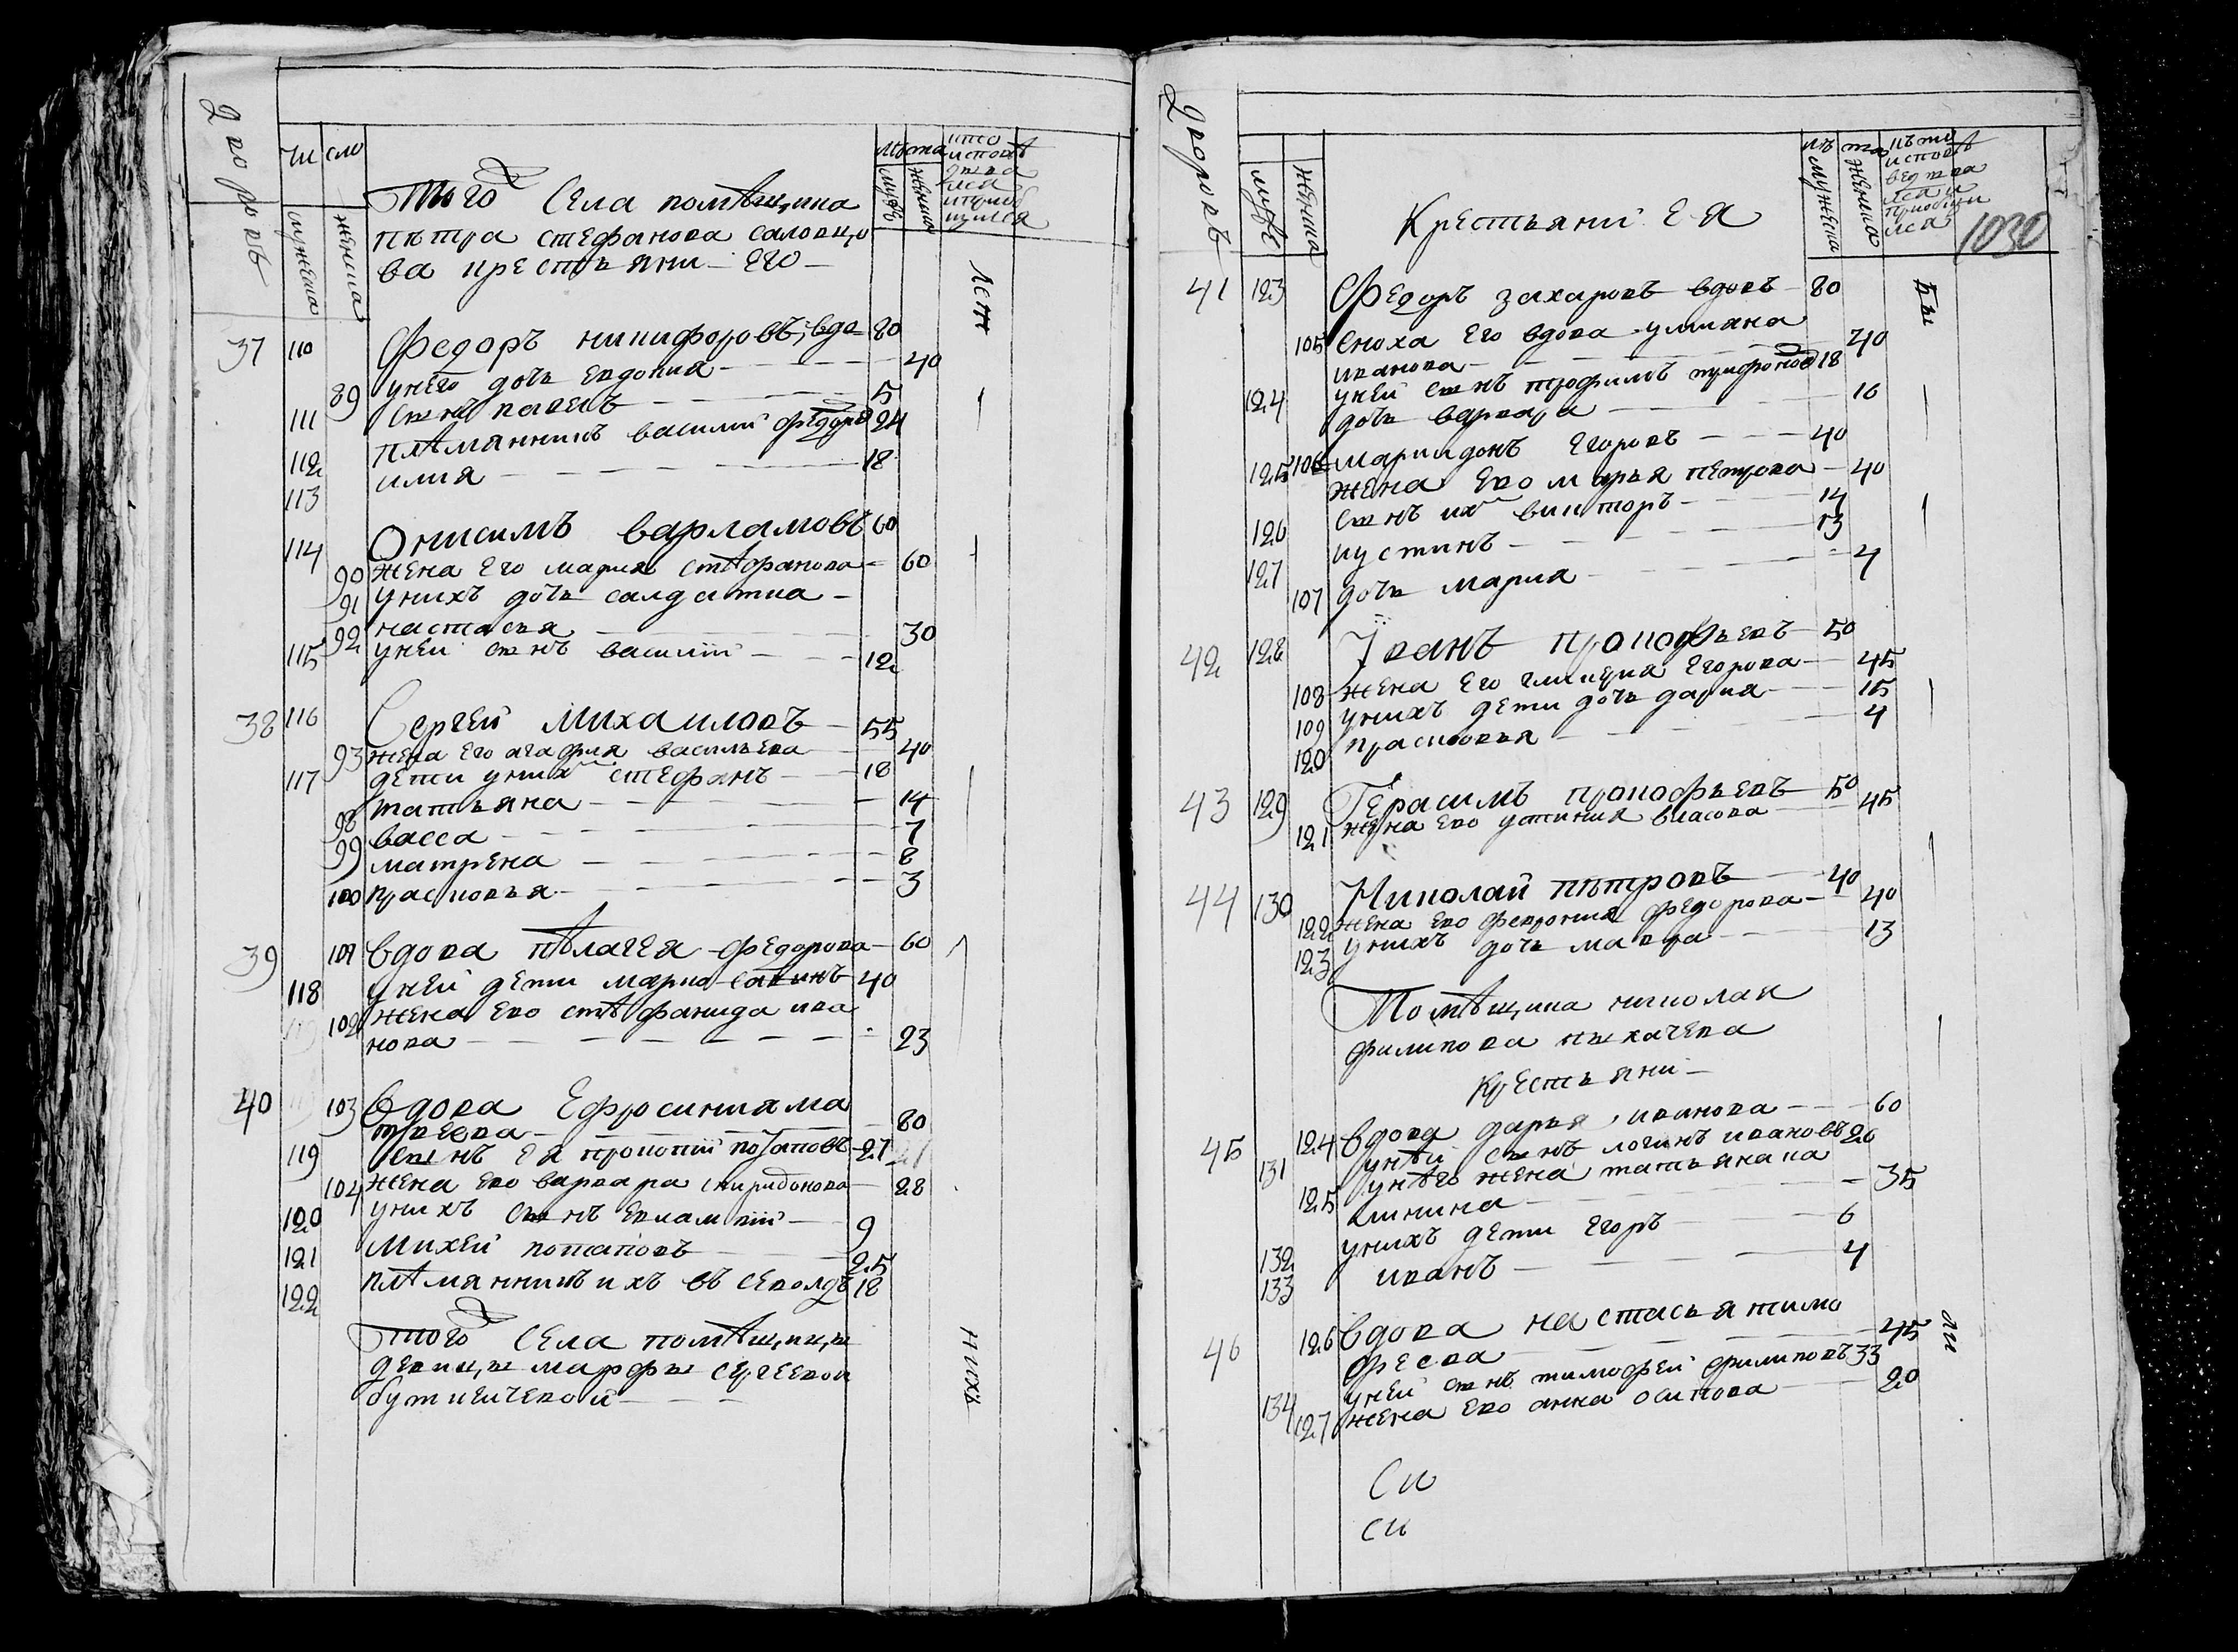 дворовъ
число
мужеска
женска
лѣта
мужеск
женска
кто исповѣдывался и приобщился
Того Села помѣщика
пѣтра стефанова саловцо
ва крестьяни его
37 110 Федоръ никифоровъ, вдо 80
89 унего дочь евдокия 40
111 сынъ павелъ 5
112 плѣманникъ василий федоро 24
113 илия 18
114 Онисимъ варламовъ 60
90 жена Его мария стѣфанова 60
91 унихъ дочь салдатка
92 настасья 30
115 уней сынъ василiй 12
38 116 Сергей михаиловъ 55
93 жена Его агафия васильева 40
117 дети уних стефанъ 18
98 татьяна 14
васса 7
99 матрена 8
100 прасковья 3
39 101 вдова пѣлагея федорова 60
118 уней дети марко савинъ 40
102 жена Ево стѣфанида ива
нова 23
40 103 вдова Ефросиния ма
твеева 80
119 сынъ Ея прокопiй потаповъ 27
104 жена Ево варвара спиридонова 28
120 унихъ сынъ евлампiй 9
121 михей потаповъ 25
122 плѣманникъ ихъ всеволдъ 18
того Села помѣщицы
девицы марфы сергеевой
буткеичевой
нихъ
дворовъ
мужес
женска
лѣта
мужеска
женска
кто исповедывался и приобщился
1030
Крестьяни Ея
41 123 Федоръ захаровъ вдовъ 80
105 сноха Его вдова улиана
иванова 40
124 уней сынъ трофимъ трифонов 18
дочь варвара 16
125 106 марилдонъ Егоровъ 40
жена Ево марья петрова 40
126 сынъ их викторъ 14
127 иустинъ 13
107 дочь мария 4
42 128 Їванъ прокофьевъ 50
108 жена Его гликерия Егорова 45
109 унихъ дети дочь дария 15
120 прасковья 4
43 129 Герасимъ прокофьевъ 50
121 жена Ево устиния власова 45
44 130 Николай пѣтровъ 40
122 жена Ево феврония федорова 40
123 унихъ дочь мавра 13
Помѣщика николая
филипова пыхачева
Крестьяни
45 124 вдова дарья иванова 60
131 унѣй сынъ логинъ ивановъ 26
125 унѣго жена татьяна ка
линина 35
132 унихъ дети Егоръ 6
133 иванъ 4
46 126 вдова настасья тимо
феева 45
134 уней сынъ тимофей филиповъ 33
127 жена Ево анна осипова 20
бы
ли
Си
си